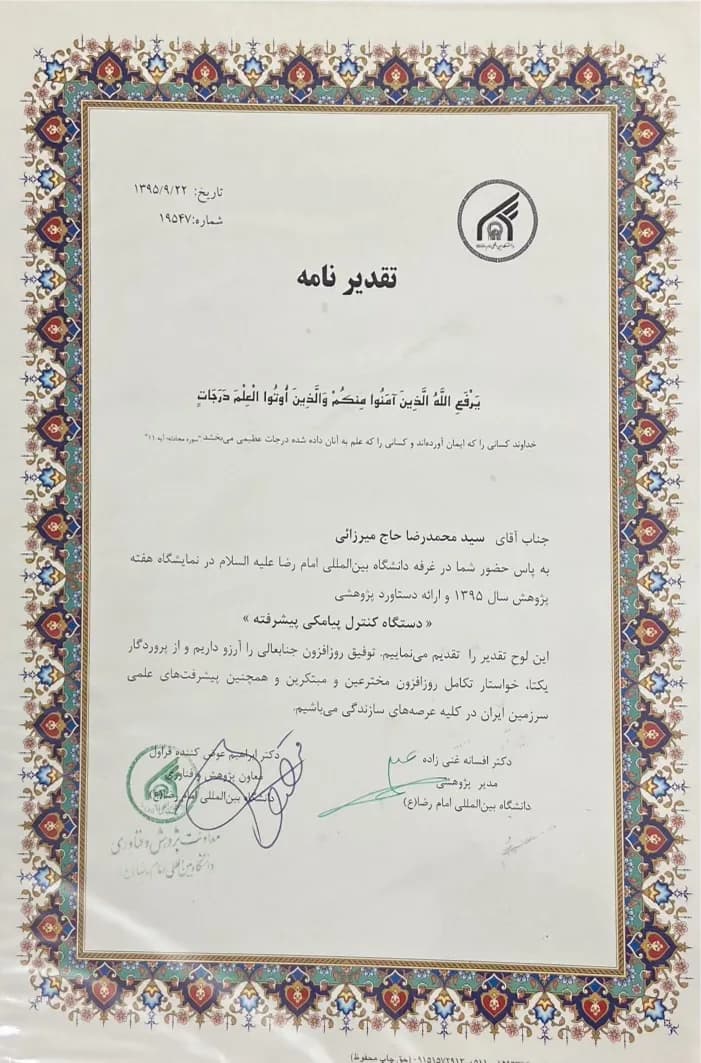 تاریخ: ۱۳۹۵/۹/۲۲
شماره: ۱۹۵۴۷
تقدیر نامه
يَرْفَعِ اللَّهُ الَّذِينَ آمَنُوا مِنكُمْ وَالَّذِينَ أُوتُوا الْعِلْمَ دَرَجَاتٍ
خداوند کسانی را که ایمان آورده‌اند و کسانی را که علم به آنان داده شده درجات عظیمی می‌بخشد "سوره مجادله- آیه ۱۱"
جناب آقای سید محمدرضا حاج میرزائی
به پاس حضور شما در غرفه دانشگاه بین‌المللی امام رضا علیه السلام در نمایشگاه هفته
پژوهش سال ۱۳۹۵ و ارائه دستاورد پژوهشی
« دستگاه کنترل پیامکی پیشرفته »
این لوح تقدیر را تقدیم می‌نماییم. توفیق روزافزون جنابعالی را آرزو داریم و از پروردگار
یکتا، خواستار تکامل روزافزون مخترعین و مبتکرین و همچنین پیشرفت‌های علمی
سرزمین ایران در کلیه عرصه‌های سازندگی می‌باشیم.
دکتر افسانه غنی زاده
مدیر پژوهشی
دانشگاه بین‌المللی امام رضا(ع)
دکتر ابراهیم عوض کننده قراول
معاون پژوهش و فناوری
دانشگاه بین‌المللی امام رضا(ع)
معاونت پژوهش و فناوری
دانشگاه بین‌المللی امام رضا (ع)
۰۹۱۵۱۵۷۲۹۱۳ (حق چاپ محفوظ)